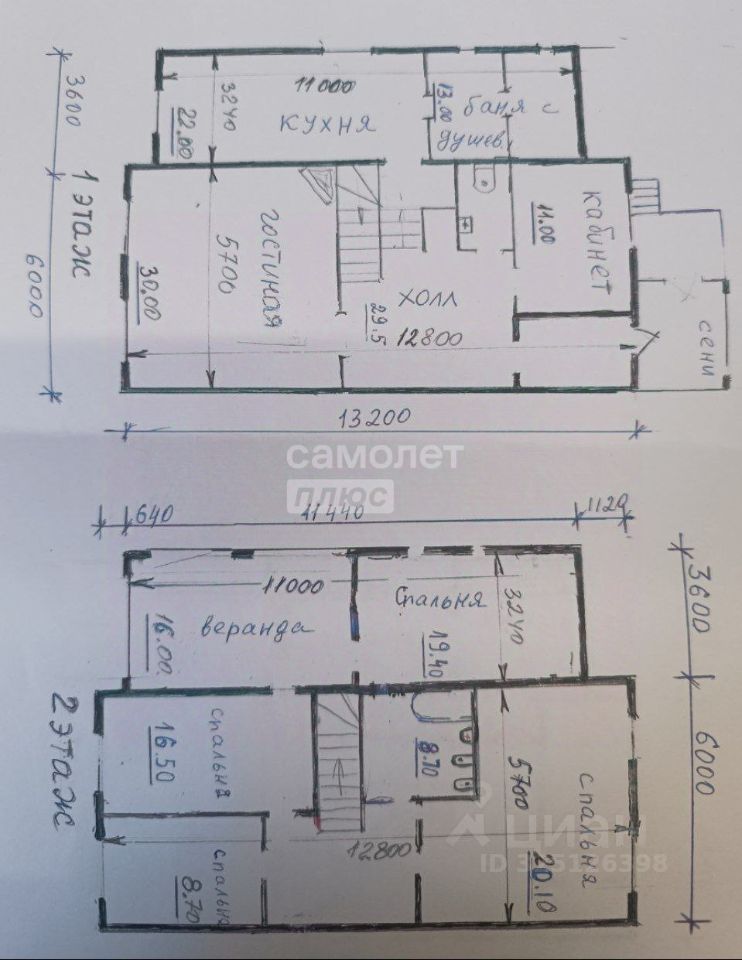 11000
3240
22.00
кухня
13.00
баня с
душев.
3600
1 этаж
6000
гостиная
5700
30.00
холл
29.5
12800
11.00
кабинет
сени
13200
самолет
плюс
640
11440
1120
11000
веранда
16.00
Спальня
3240
19.40
3600
2 этаж
спальня
16.50
8.70
5700
спальня
20.10
6000
спальня
8.70
12800
циан